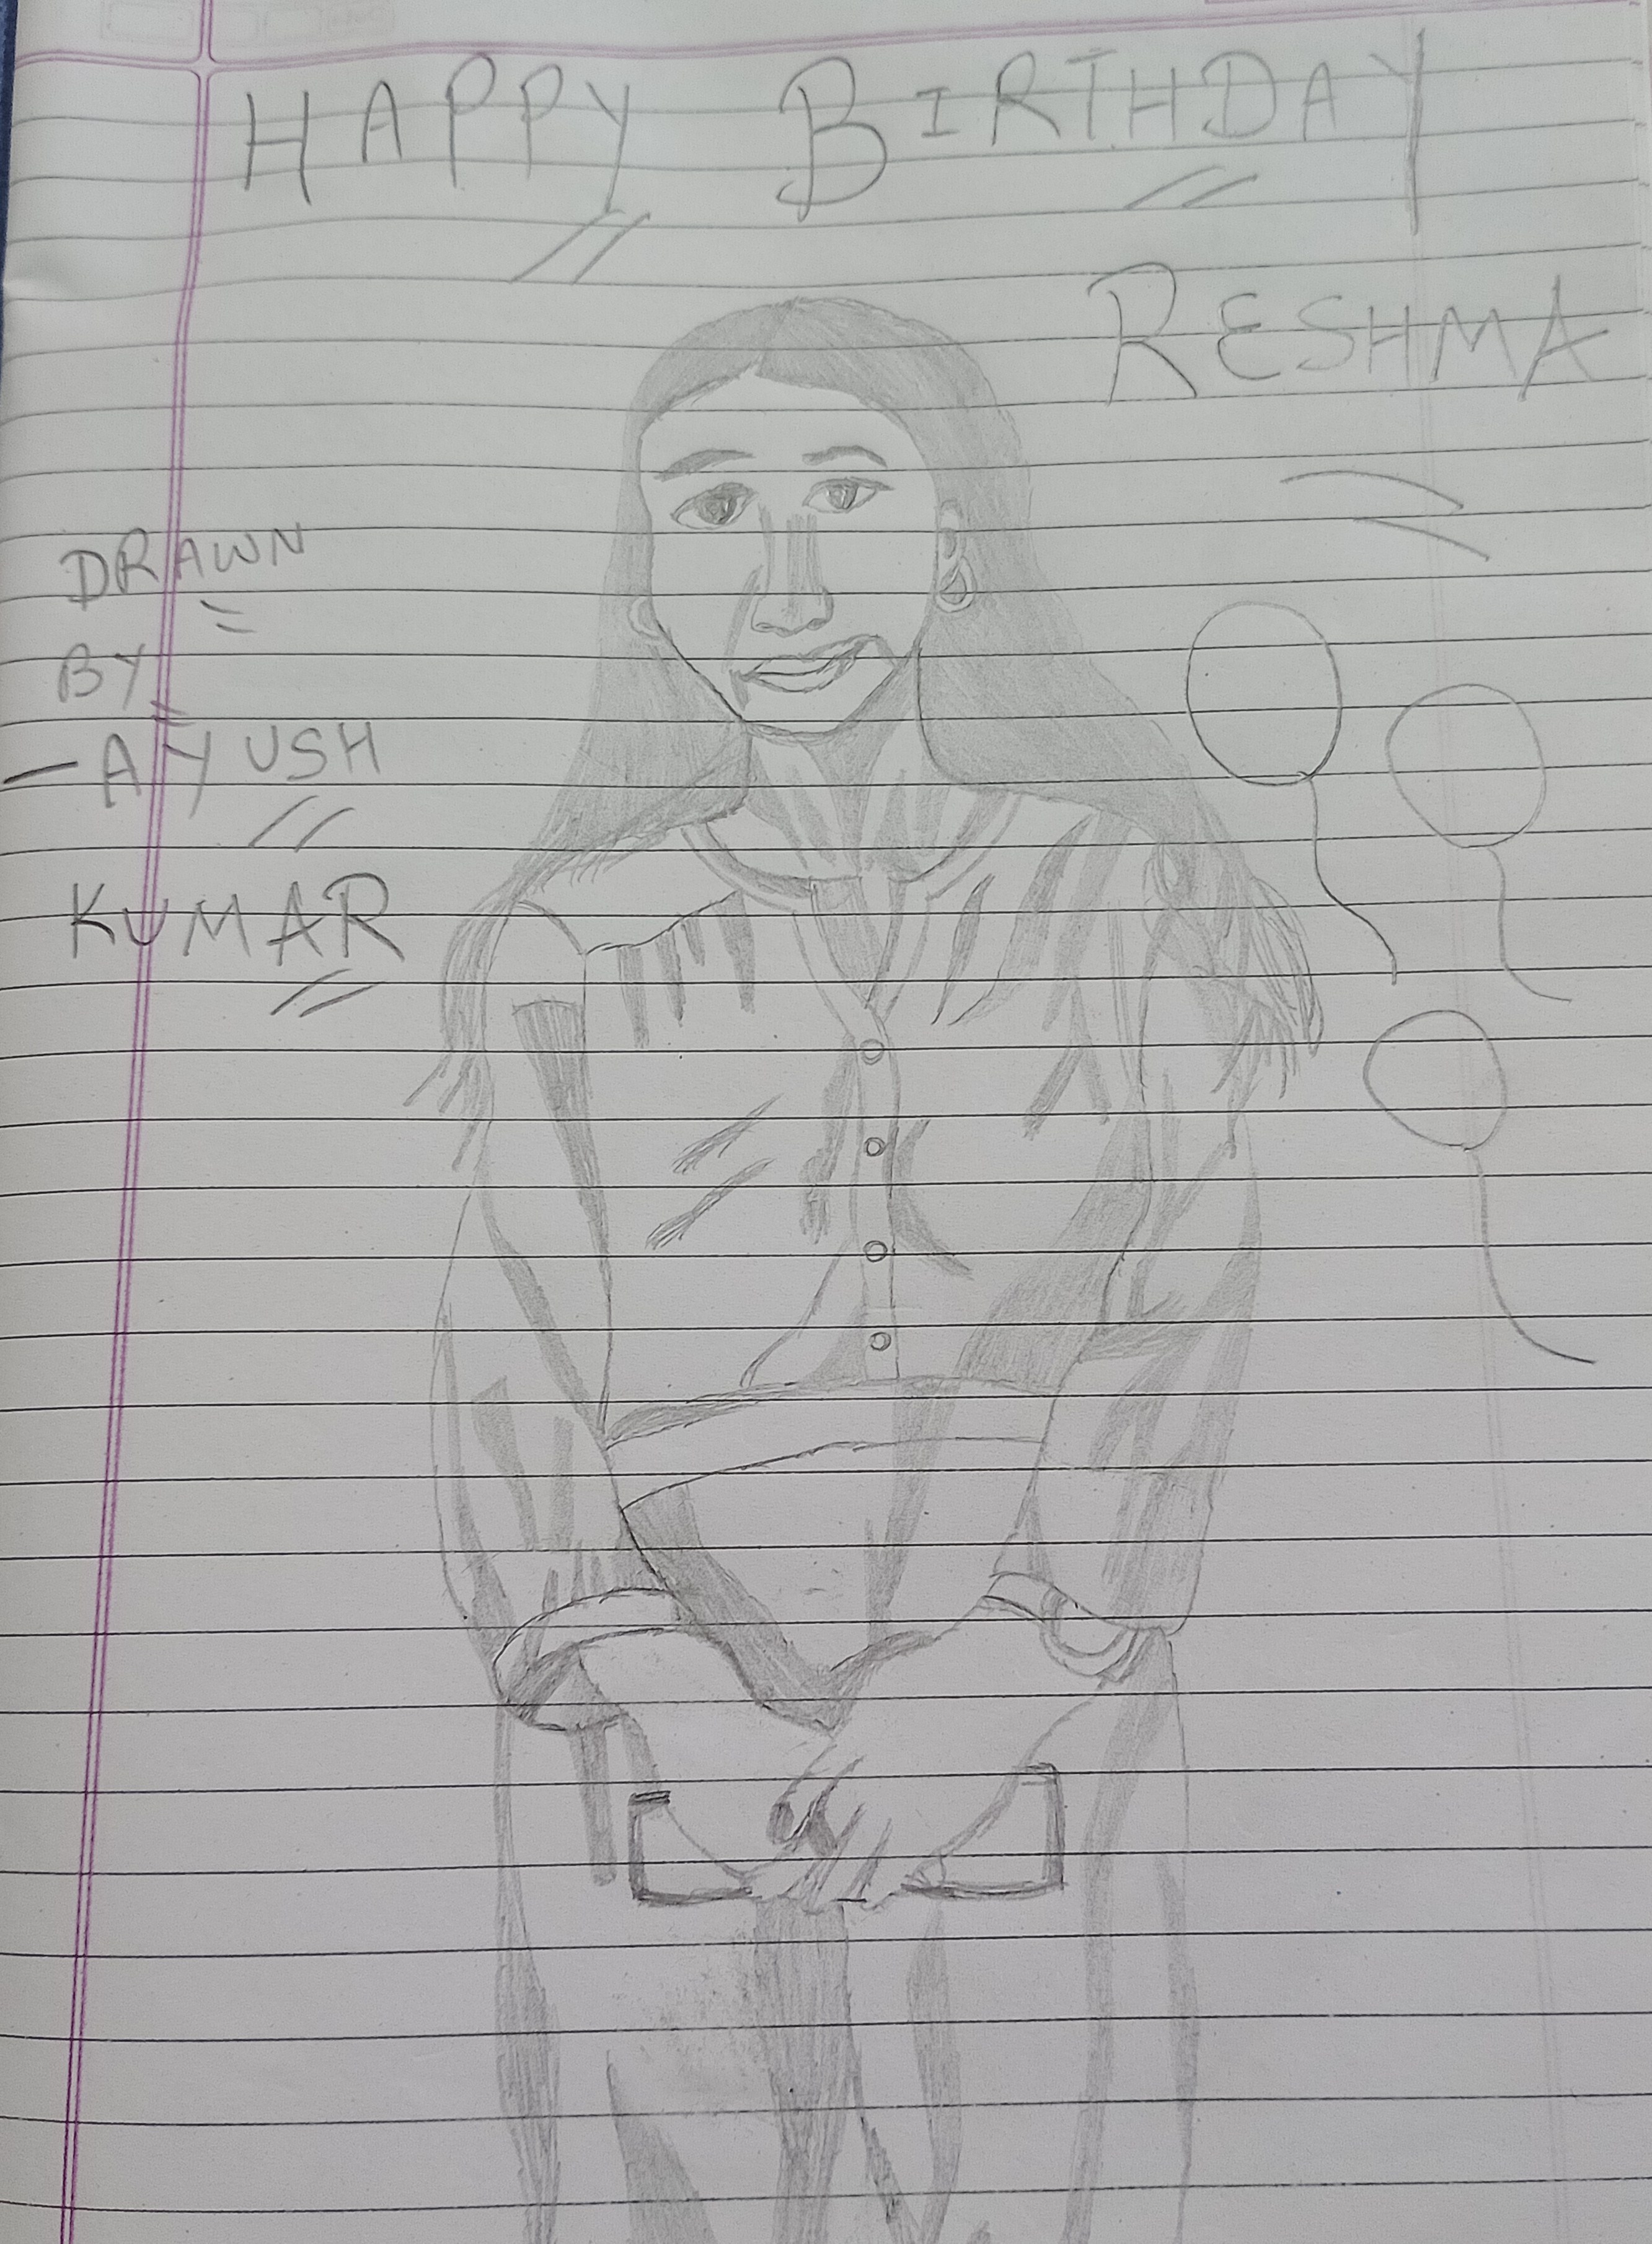 HAPPY BIRTHDAY
RESHMA
DRAWN
BY
- AYUSH
KUMAR